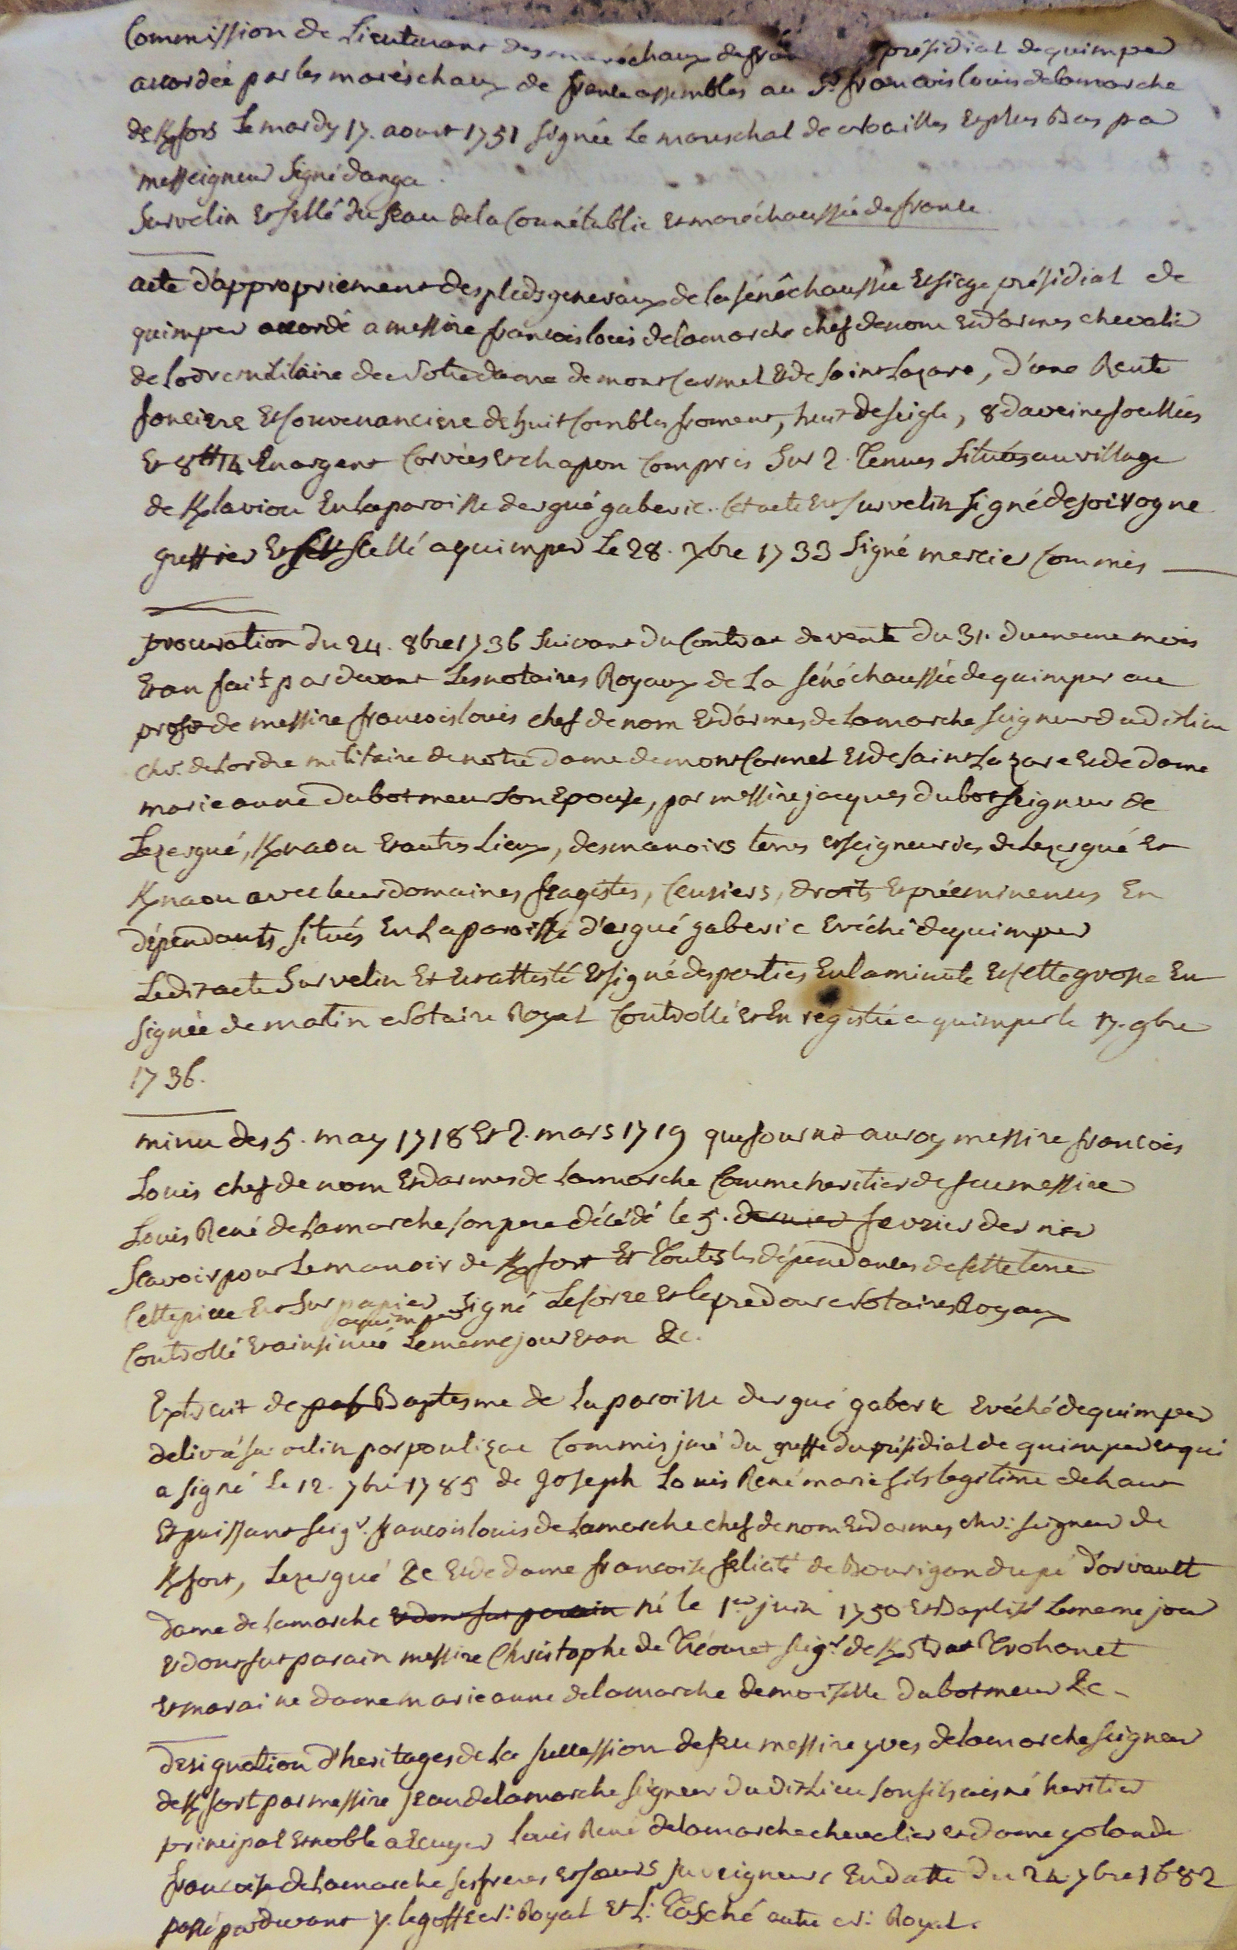 Commission de Lieutenant des maréchaux de fran présidial de quimper
accordée par les maréschaux de france assemblés au Sr francois louis de la marche
de Kfors Le mardy 17. aoust 1751 signée Le mareschal de et plus Bas par
messeigneur signé danga
Sur velin et sellé du seau de la Connétablie et maréchaussée de france
acte d'appropriement des pleds generaux de la sénêchaussée et siege présidial de
quimper accordé a messire francois louis de lamarche chef de nom et d'armes chevalier
de Lodre militaire de Notre dame de mont Carmel et de saint Lazare, d'une Rente
fonciere et Convenanciere de huit Combles froment, huit de seigle, 8 d'aveine foullées
et 8tt 14 s En argent Corvées et chapon Compris Sur 2. Tenues situées au village
de Klaviou En la paroisse dergué gaberic. Cet acte Est sur velin signé de joivogne
greffier Et scellé a quimper Le 28. 7bre 1733 signé mercier Commis
procuration du 24. 8bre 1736 suivant du Contrat de vente du 31. du meme mois
et an fait par devant Les notaires Royaux de La sénéchaussée de quimper au
profit de messire francois louis chef de nom et d'armes de Lamarche seigneur dudit lieu
chr. de Lordre militaire de notre dame de mont Carmel et de saint Lazare et de dame
marie anne du botmeur son Epouse, par messire jacques dubot seigneur de
Lezergué, Knaou et autres Lieux, des manoirs terres et seigneuries de Lezergué et
Knaou avec leurs domaines fragistes, Censiers, droits et prééminences En
dépendants situés En La paroisse d'ergué gaberic Evéché de quimper
Ledit acte Sur velin Et est attesté et signé des parties En la minute et cette grosse En
signée de matin Notaire Royal Controllé et En registré a quimper le 17. 9bre
1736.
minu des 5. may 1718 et 2. mars 1719 que fournit au roy messire francois
Louis chef de nom et d'armes de Lamarche Comme heritier de feu messire
Louis René de Lamarche son pere décédé le 5. dernier fevrier dernier
Scavoir pour Le manoir de Kfort Et Toutes les dépendances de cette terre
Cette piece Est Sur papier signé Leforre et le predour Notaires Royaux
Controllé et insinué a quimper Le meme jour et an &c.
Extrait de pas Baptesme de La paroisse dergué gaberic Evéché de quimper
delivré sur velin par poulizac Commis juré du greffe du présidial de quimper et qui
a signé Le 12. 7bre 1785 de Joseph Louis René marie fils legitime de haut
Et puissant seigr. francois louis de Lamarche chef de nom et d'armes chr. seigneur de
Kfort, Lezergué &c et de dame francoise felicité de Bourigan dupé d'orvault
dame de Lamarche et dont fut parain né le 1er juin 1750 et Baptisé Le meme jour
et dont fut parain messire Christophe de Tréouret seigr. de Kstrat Trohanet
et maraine dame marie anne de lamarche demoiselle dubotmeur &c
designation d'heritages de La succession de feu messire yves de lamarche seigneur
de Kfort par messire jean de lamarche seigneur dudit Lieu son fils aisné heritier
principal et noble a Ecuyer louis René de lamarche chevalier et dame yolande
francoise de Lamarche ses freres et sœurs juveigneurs En datte du 24. 7bre 1682
passé par devant y. legoff Nr. Royal et L: Tasché autre Nr: Royal.